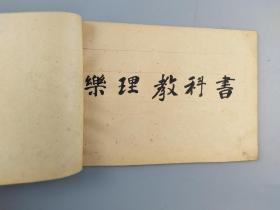 樂理教科書